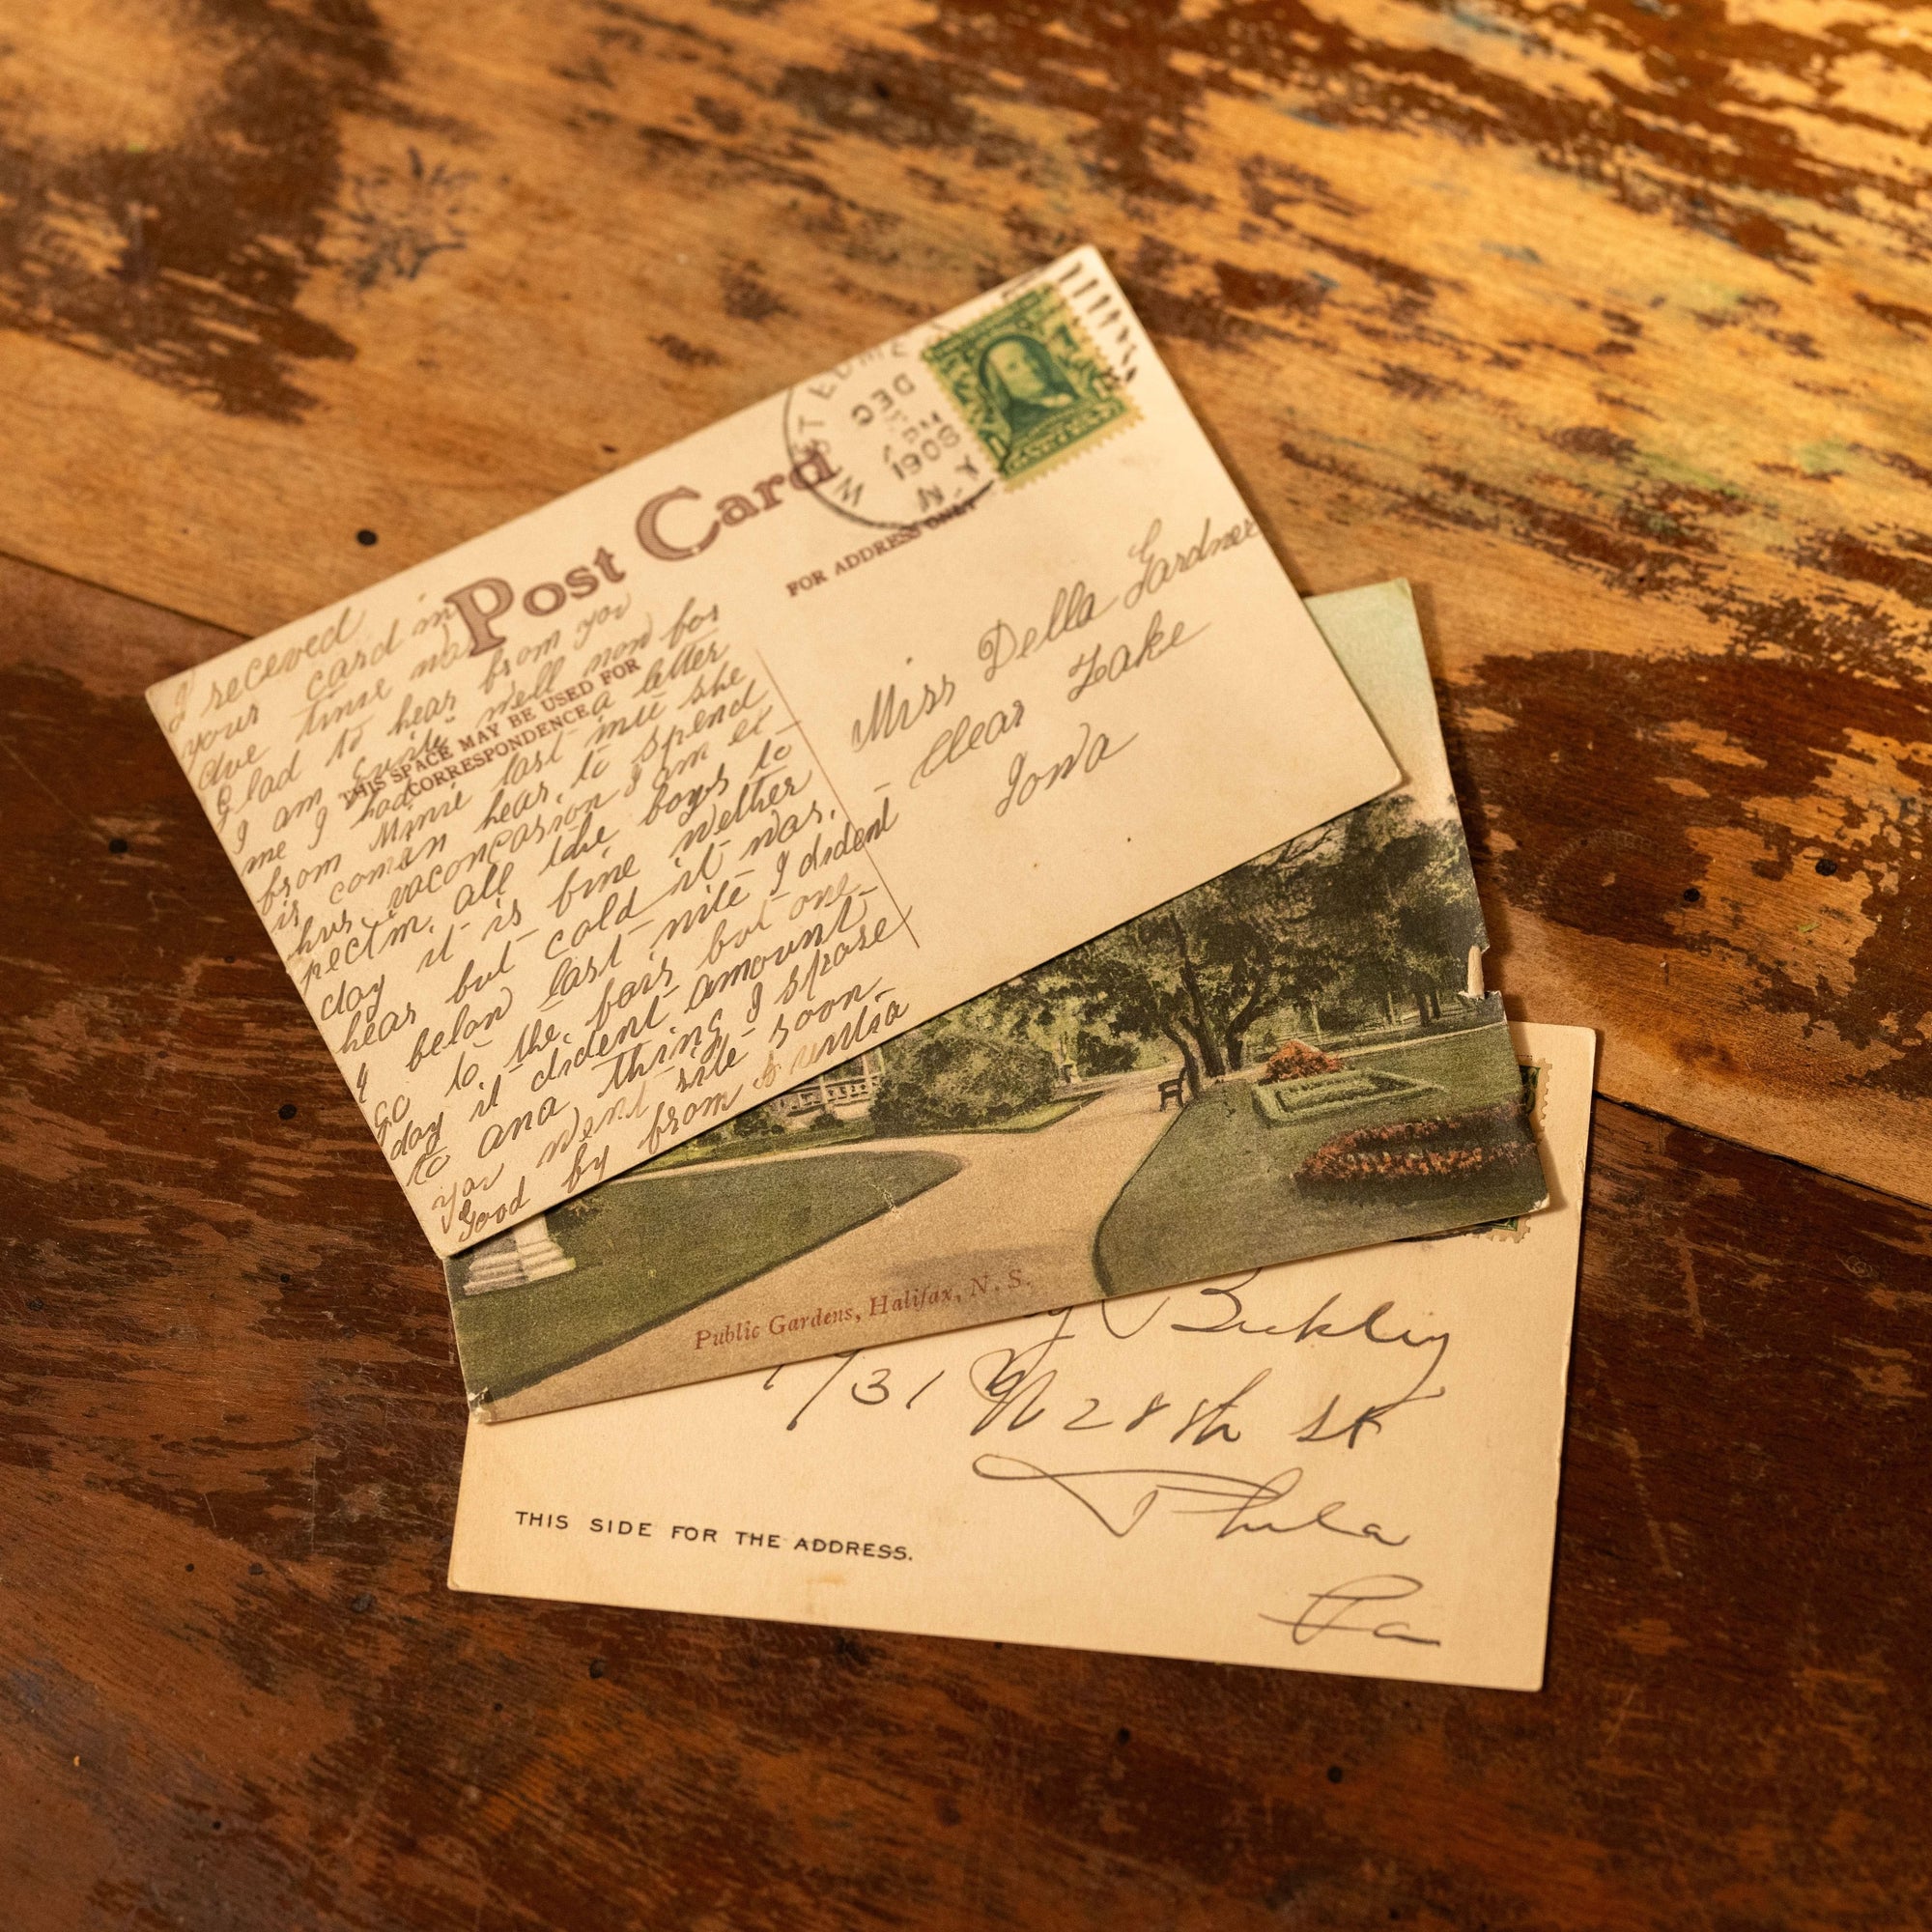 Post Card
WEST EDME
DEC
PM
1908
N.Y.
FOR ADDRESS ONLY
THIS SPACE MAY BE USED FOR
CORRESPONDENCE
I receved
your card in
due time was
glad to hear from you
I am quite well now for
me I had a letter
from Minie last nite she
is comen hear, to spend
hur, vaconcasion I am ex
pectin, all the boys to
day it is fine wether
hear but cold it was,
below last nite I dident
go to the, fair but one
day it dident amount
to ana thing I spose
you went rite soon
Good by from
Miss Della Gardner
Clear Lake
Iowa
Public Gardens, Halifax, N. S.
Buckley
N 28th St
Phila
Pa
THIS SIDE FOR THE ADDRESS.